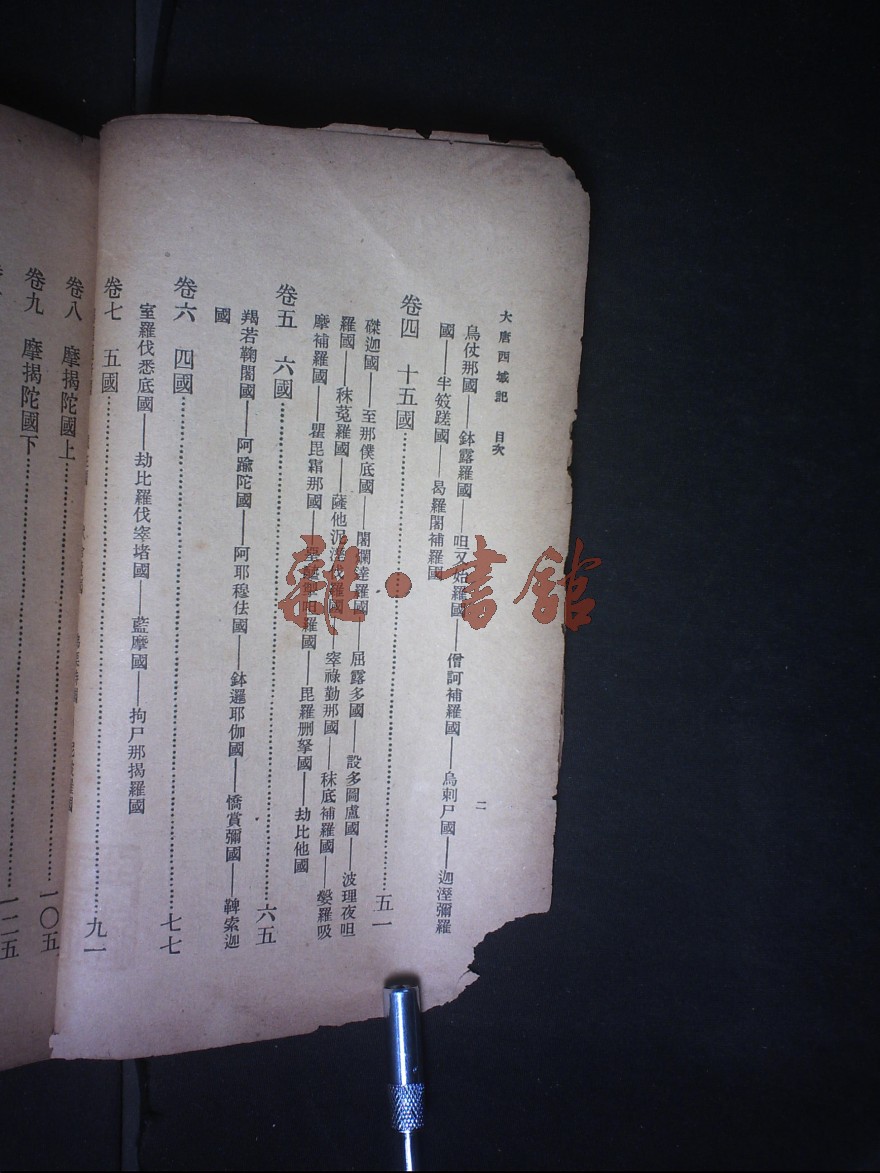 大唐西域記 目次
二
烏仗那國——鉢露羅國——呾叉始羅國——僧訶補羅國——烏剌尸國——迦溼彌羅
國——半笯蹉國——曷羅闍補羅國
卷四 十五國……五一
磔迦國——至那僕底國——闍爛達羅國——屈露多國——設多圖盧國——波理夜呾
羅國——秣菟羅國——薩他泥溼伐羅國——窣祿勤那國——秣底補羅國——婆羅吸
摩補羅國——瞿毘霜那國——堊醯掣呾羅國——毘羅刪拏國——劫比他國
卷五 六國……六五
羯若鞠闍國——阿踰陀國——阿耶穆佉國——鉢邏耶伽國——憍賞彌國——鞞索迦
國
卷六 四國……七七
室羅伐悉底國——劫比羅伐窣堵國——藍摩國——拘尸那揭羅國
卷七 五國……九一
卷八 摩揭陀國上……一〇五
卷九 摩揭陀國下……一二五
雜·書館